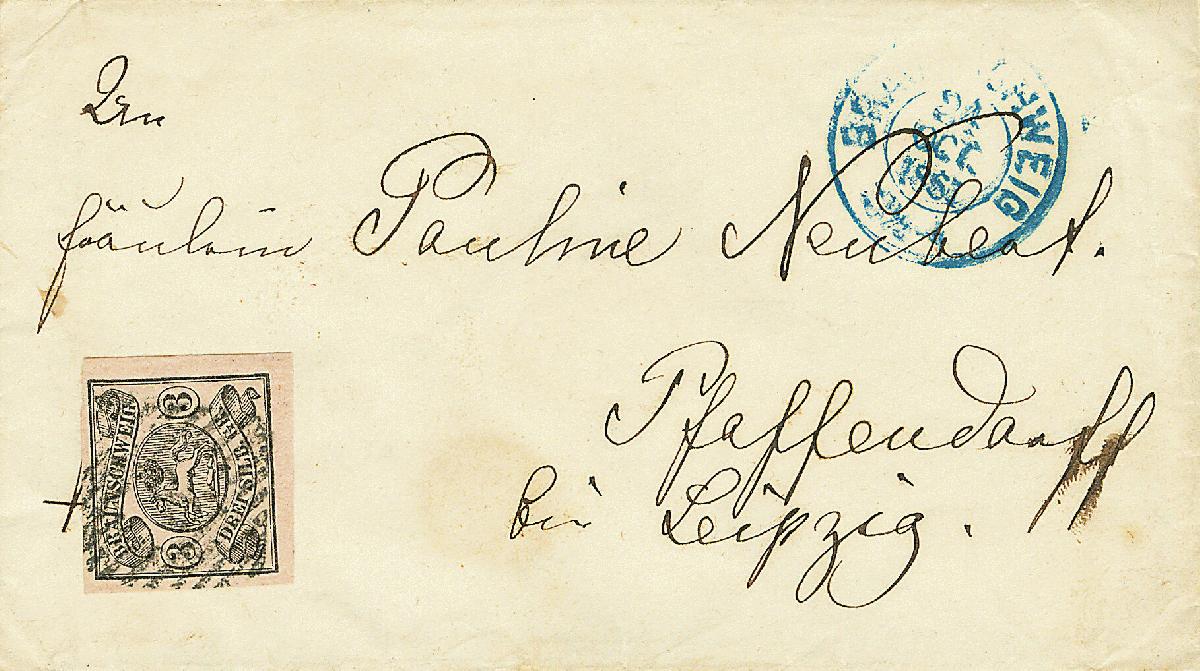 An
Fräulein Pauline Neubert.
Pfaffendorff
bei Leipzig.
BRAUNSCHWEIG
3
BRAUNSCHWEIG
DREI SILB. GR.
3